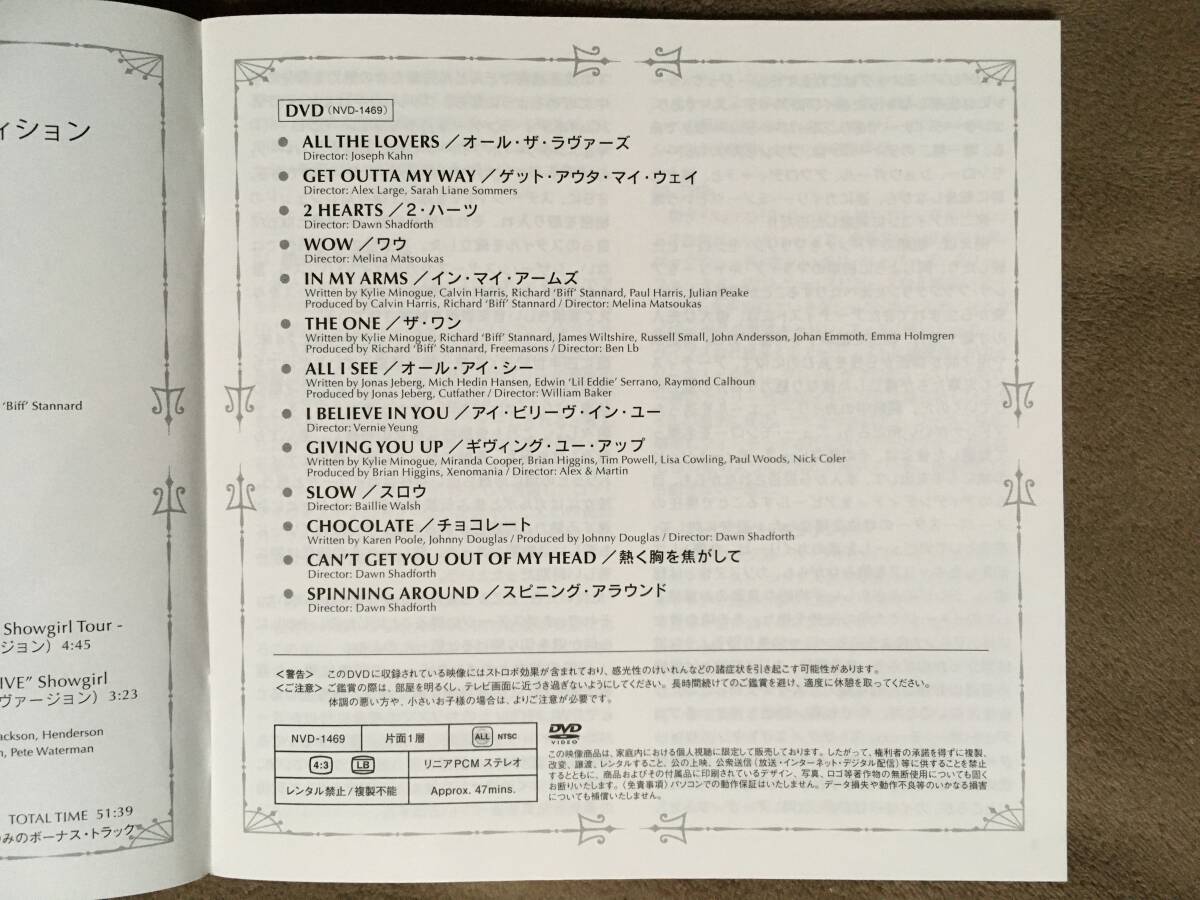 ィション
'Biff' Stannard
Showgirl Tour -
ジョン) 4:45
IVE” Showgirl
ヴァージョン) 3:23
ackson, Henderson
n, Pete Waterman
TOTAL TIME 51:39
みのボーナス・トラック
DVD (NVD-1469)
ALL THE LOVERS／オール・ザ・ラヴァーズ
Director: Joseph Kahn
GET OUTTA MY WAY／ゲット・アウタ・マイ・ウェイ
Director: Alex Large, Sarah Liane Sommers
2 HEARTS／2・ハーツ
Director: Dawn Shadforth
WOW／ワウ
Director: Melina Matsoukas
IN MY ARMS／イン・マイ・アームズ
Written by Kylie Minogue, Calvin Harris, Richard ‘Biff’ Stannard, Paul Harris, Julian Peake
Produced by Calvin Harris, Richard ‘Biff’ Stannard / Director: Melina Matsoukas
THE ONE／ザ・ワン
Written by Kylie Minogue, Richard ‘Biff’ Stannard, James Wiltshire, Russell Small, John Andersson, Johan Emmoth, Emma Holmgren
Produced by Richard ‘Biff’ Stannard, Freemasons / Director: Ben Lb
ALL I SEE／オール・アイ・シー
Written by Jonas Jeberg, Mich Hedin Hansen, Edwin ‘Lil Eddie’ Serrano, Raymond Calhoun
Produced by Jonas Jeberg, Cutfather / Director: William Baker
I BELIEVE IN YOU／アイ・ビリーヴ・イン・ユー
Director: Vernie Yeung
GIVING YOU UP／ギヴィング・ユー・アップ
Written by Kylie Minogue, Miranda Cooper, Brian Higgins, Tim Powell, Lisa Cowling, Paul Woods, Nick Coler
Produced by Brian Higgins, Xenomania / Director: Alex & Martin
SLOW／スロウ
Director: Baillie Walsh
CHOCOLATE／チョコレート
Written by Karen Poole, Johnny Douglas / Produced by Johnny Douglas / Director: Dawn Shadforth
CAN'T GET YOU OUT OF MY HEAD／熱く胸を焦がして
Director: Dawn Shadforth
SPINNING AROUND／スピニング・アラウンド
Director: Dawn Shadforth
＜警告＞ このDVDに収録されている映像にはストロボ効果が含まれており、感光性のけいれんなどの諸症状を引き起こす可能性があります。
＜ご注意＞ ご鑑賞の際は、部屋を明るくし、テレビ画面に近づき過ぎないようにしてください。長時間続けてのご鑑賞を避け、適度に休憩を取ってください。
体調の悪い方や、小さいお子様の場合は、よりご注意が必要です。
NVD-1469 片面1層 ALL NTSC
4:3 LB リニアPCM ステレオ
レンタル禁止/複製不能 Approx. 47mins.
DVD VIDEO
この映像商品は、家庭内における個人視聴に限定して販売しております。したがって、権利者の承諾を得ずに複製、
改変、譲渡、レンタルすること、公の上映、公衆送信（放送・インターネット・デジタル配信）等に供することを禁止
するとともに、商品およびその付属品に印刷されているデザイン、写真、ロゴ等著作物の無断使用についても固く
お断りいたします。〈免責事項〉パソコンでの動作保証はいたしません。データ損失や動作不良等のいかなる損害
についても補償いたしません。